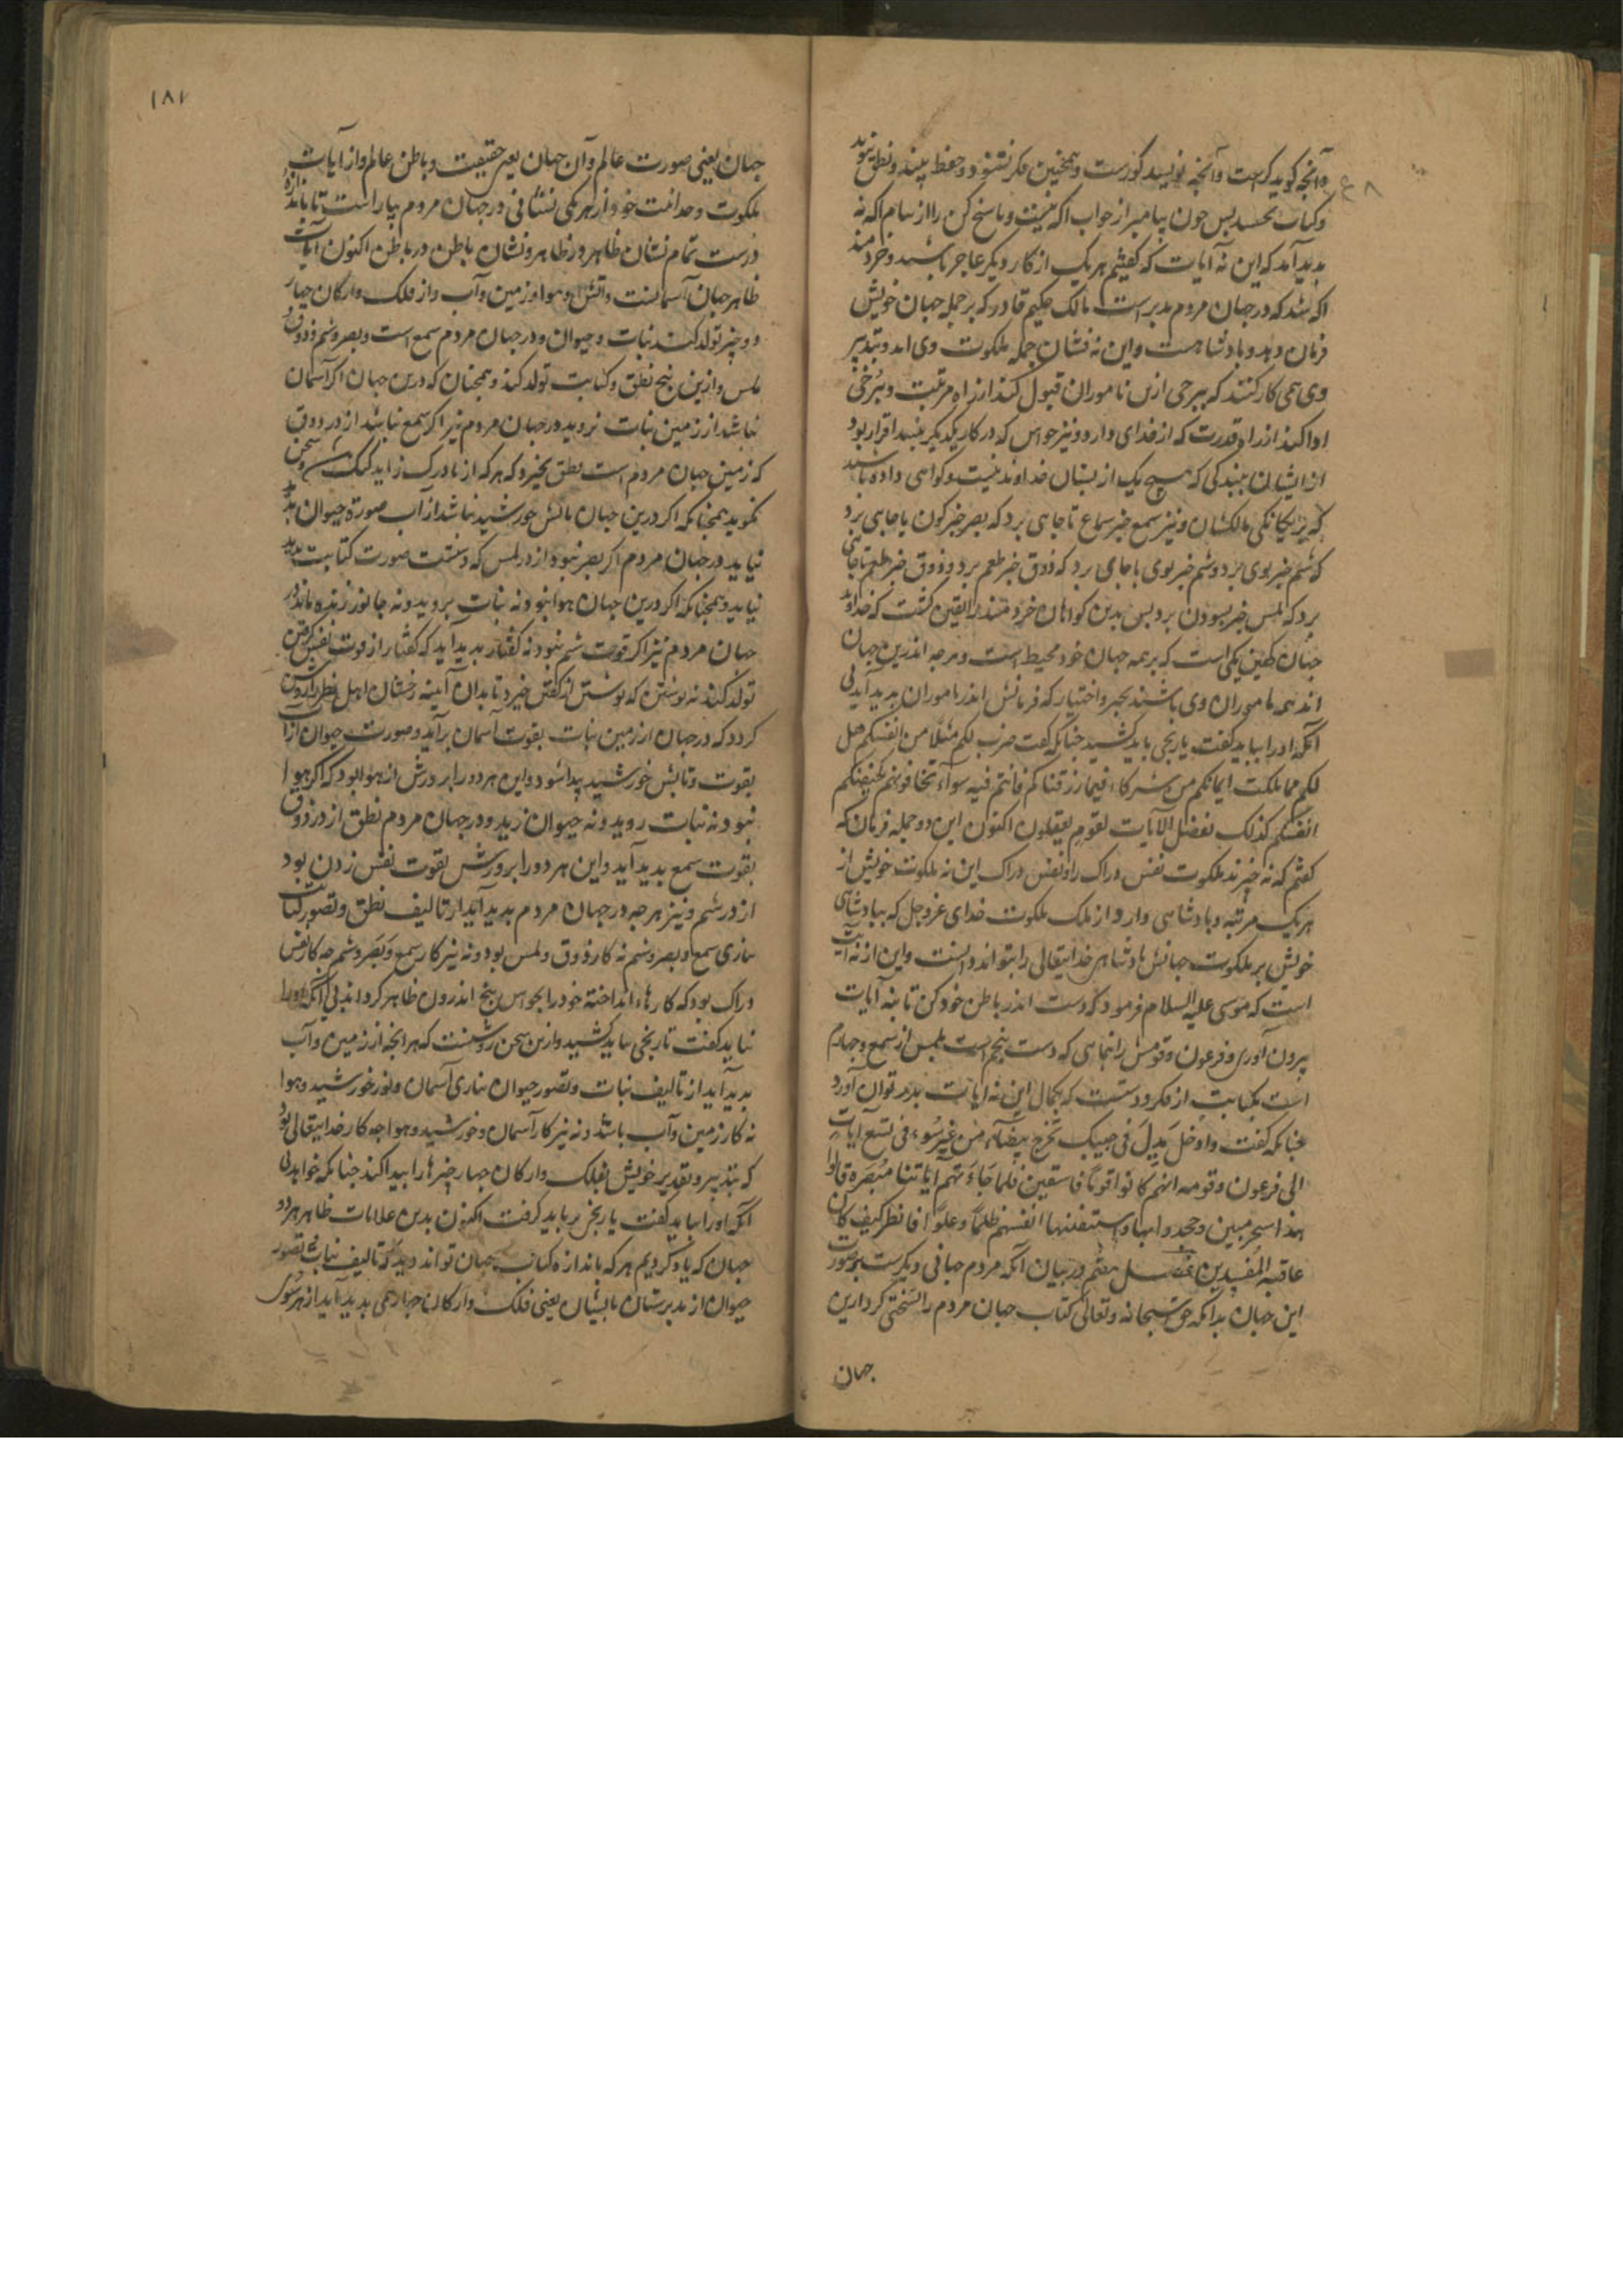 وآنچه گوید کرست وآنچه نویسد کورست وهمچنین فکر نشنود وحفظ نبیند ونطق نبوید
وکتاب نچشد پس چون پیامبر از جواب آگه نیست وپاسخ کن را از پیام آگه نه
پدید آمد که این نه آیات که گفتیم هر یک از کار دیگر عاجز باشند وخردمند
آگه شد که در جهان مردم مدبر است مالک حکیم قادر که بر جمله جهان خویش
فرمان دهد وپادشاهست واین نه نشان جمله ملکوت وی اند وبتدبیر
وی همی کار کنند که برخی ازین ناموران قبول کنند از راه مرتبت وبرخی
ادا کنند از راه قدرت که از خدای دارد ونیز حواس که در کار یکدیگر نبیند اقرار بود
از ایشان ببندگی که هیچ یک از یشان خداوند نیست وگواهی داده باشند
که بر یگانگی مالکشان ونیز سمع خبر سماع تا جایی برد که بصر خبر کون باجایی برد
که شم خبر بوی برد وشم خبر بوی باجای برد که ذوق خبر طعم برد وذوق خبر طعم تا جائی
برد که لمس خبر بسودن برد پس بدین گواهان خردمند را یقین گشت که خداوند
جهان کهین یکی است که بر همه جهان خود محیط است وهرچه اندرین جهان
اند همه ماموران وی باشند بجبر واختیار که فرمانش اندر ماموران پدید آید بی
آنکه او را بباید گفت یا رنجی باید کشید چنانکه گفت ضرب لکم مثلا من انفسکم هل
لکم مما ملکت ایمانکم من شرکاء فیما رزقناکم فانتم فیه سواء تخافونهم کخیفتکم
انفسکم کذلک نفصل الآیات لقوم یعقلون اکنون این دو جمله فرمان که
گفتیم که نه خبرند ملکوت نفس دراک را ونفس دراک این نه ملکوت خویش از
هر یک مرتبه وپادشاهی دارد از ملک ملکوت خدای عز وجل که بپادشاهی
خویش بر ملکوت جهانش پادشاهی خدایتعالی را بتواند دانست واین از نه آیت
است که موسی علیه السلام فرمود که دست اندر باطن خود کن تا نه آیات
بیرون آوری وفرعون وقومش را نمایی که دست پنجم است بلمس از سمع وچهارم
است بکتابت از فکر ودستست که بکمال این نه آیات بدر توان آورد
چنانکه گفت وادخل یدک فی جیبک تخرج بیضاء من غیر سوء فی تسع آیات
الی فرعون وقومه انهم کانوا قوما فاسقین فلما جاءتهم آیاتنا مبصرة قالوا
هذا سحر مبین وجحدوا بها واستیقنتها انفسهم ظلما وعلوا فانظر کیف کان
عاقبة المفسدین فصل هفتم در بیان آنکه مردم جهانی دیگرست بصورت
این جهان بدانکه حق سبحانه وتعالی کتاب جهان مردم را نسختی کرد ازین
جهان
۱۸۱
جهان یعنی صورت عالم وآن جهان یعنی حقیقت وباطن عالم واز آیات
ملکوت وحدانیت خود از هر یکی نشانی در جهان مردم بیاراست تا باندازهٔ
درست تمام نشان ظاهر در ظاهر ونشان باطن در باطن اکنون آیات
ظاهر جهان آسمانست وآتش وهوا وزمین وآب واز فلک وارکان چهار
دو چیز تولد کنند نبات وحیوان ودر جهان مردم سمع است وبصر وشم وذوق و
لمس وازین پنج نطق وکتابت تولد کند وهمچنان که درین جهان اگر آسمان
نباشد از زمین نبات نروید در جهان مردم نیز اگر سمع نباشد از در ذوق
که زمین جهان مردم است نطق نخیزد که هر که از مادر کر زاید گنگ وسخن
نگوید همچنانکه اگر درین جهان تابش خورشید نباشد از آب صورة حیوان پدید
نیاید در جهان مردم اگر بصر نبود از در لمس که دستست صورت کتابت پدید
نیاید وهمچنانکه اگر درین جهان هوا نبود نه نبات بروید ونه جانور زنده ماند در
جهان مردم نیز اگر قوت شم نبود نه گفتار پدید آید که گفتار از قوت نفس گرفتن
تولد کند نه نوشتن که نوشتن از گفتن خیزد تا بدان آیینه رخشان اهل نظر را روشن
گردد که در جهان از زمین نبات بقوت آسمان برآید وصورت حیوان از آب
بقوت وتابش خورشید پیدا شود واین هر دو را پرورش از هوا بود که اگر هوا
نبود نه نبات روید ونه حیوان زید ودر جهان مردم نطق از در ذوق
بقوت سمع پدید آید واین هر دو را پرورش بقوت نفس زدن بود
از در شم ونیز هرچه در جهان مردم پدید آید از تالیف نطق وتصویر کتابت
بیاری سمع وبصر وشم نه کار ذوق ولمس بود ونه نیز کار سمع وبصر وشم چه کار نفس
دراک بود که کارهاء انداخته خود را بحواس پنج اندرون ظاهر گرداند بی آنکه او را
بباید گفت تا رنجی بباید کشید وازین سخن روشنست که هر آنچه از زمین وآب
پدید آید از تالیف نبات وتصویر حیوان بیاری آسمان ونور خورشید وهوا
نه کار زمین وآب باشد ونه نیز کار آسمان وخورشید وهوا چه کار خدایتعالی بود
که بتدبیر وتقدیر خویش بفلک وارکان چهار چیزها را پیدا کند چنانکه خواهد بی
آنکه او را بباید گفت یا رنج برباید گرفت اکنون بدین علامات ظاهر هر دو
جهان که یاد کردیم هر که باندازه کتاب جهان تواند دید که تالیف نبات وتصویر
حیوان از مدبرستان بایشان یعنی فلک وارکان چهار همی پدید آید از هر سوی